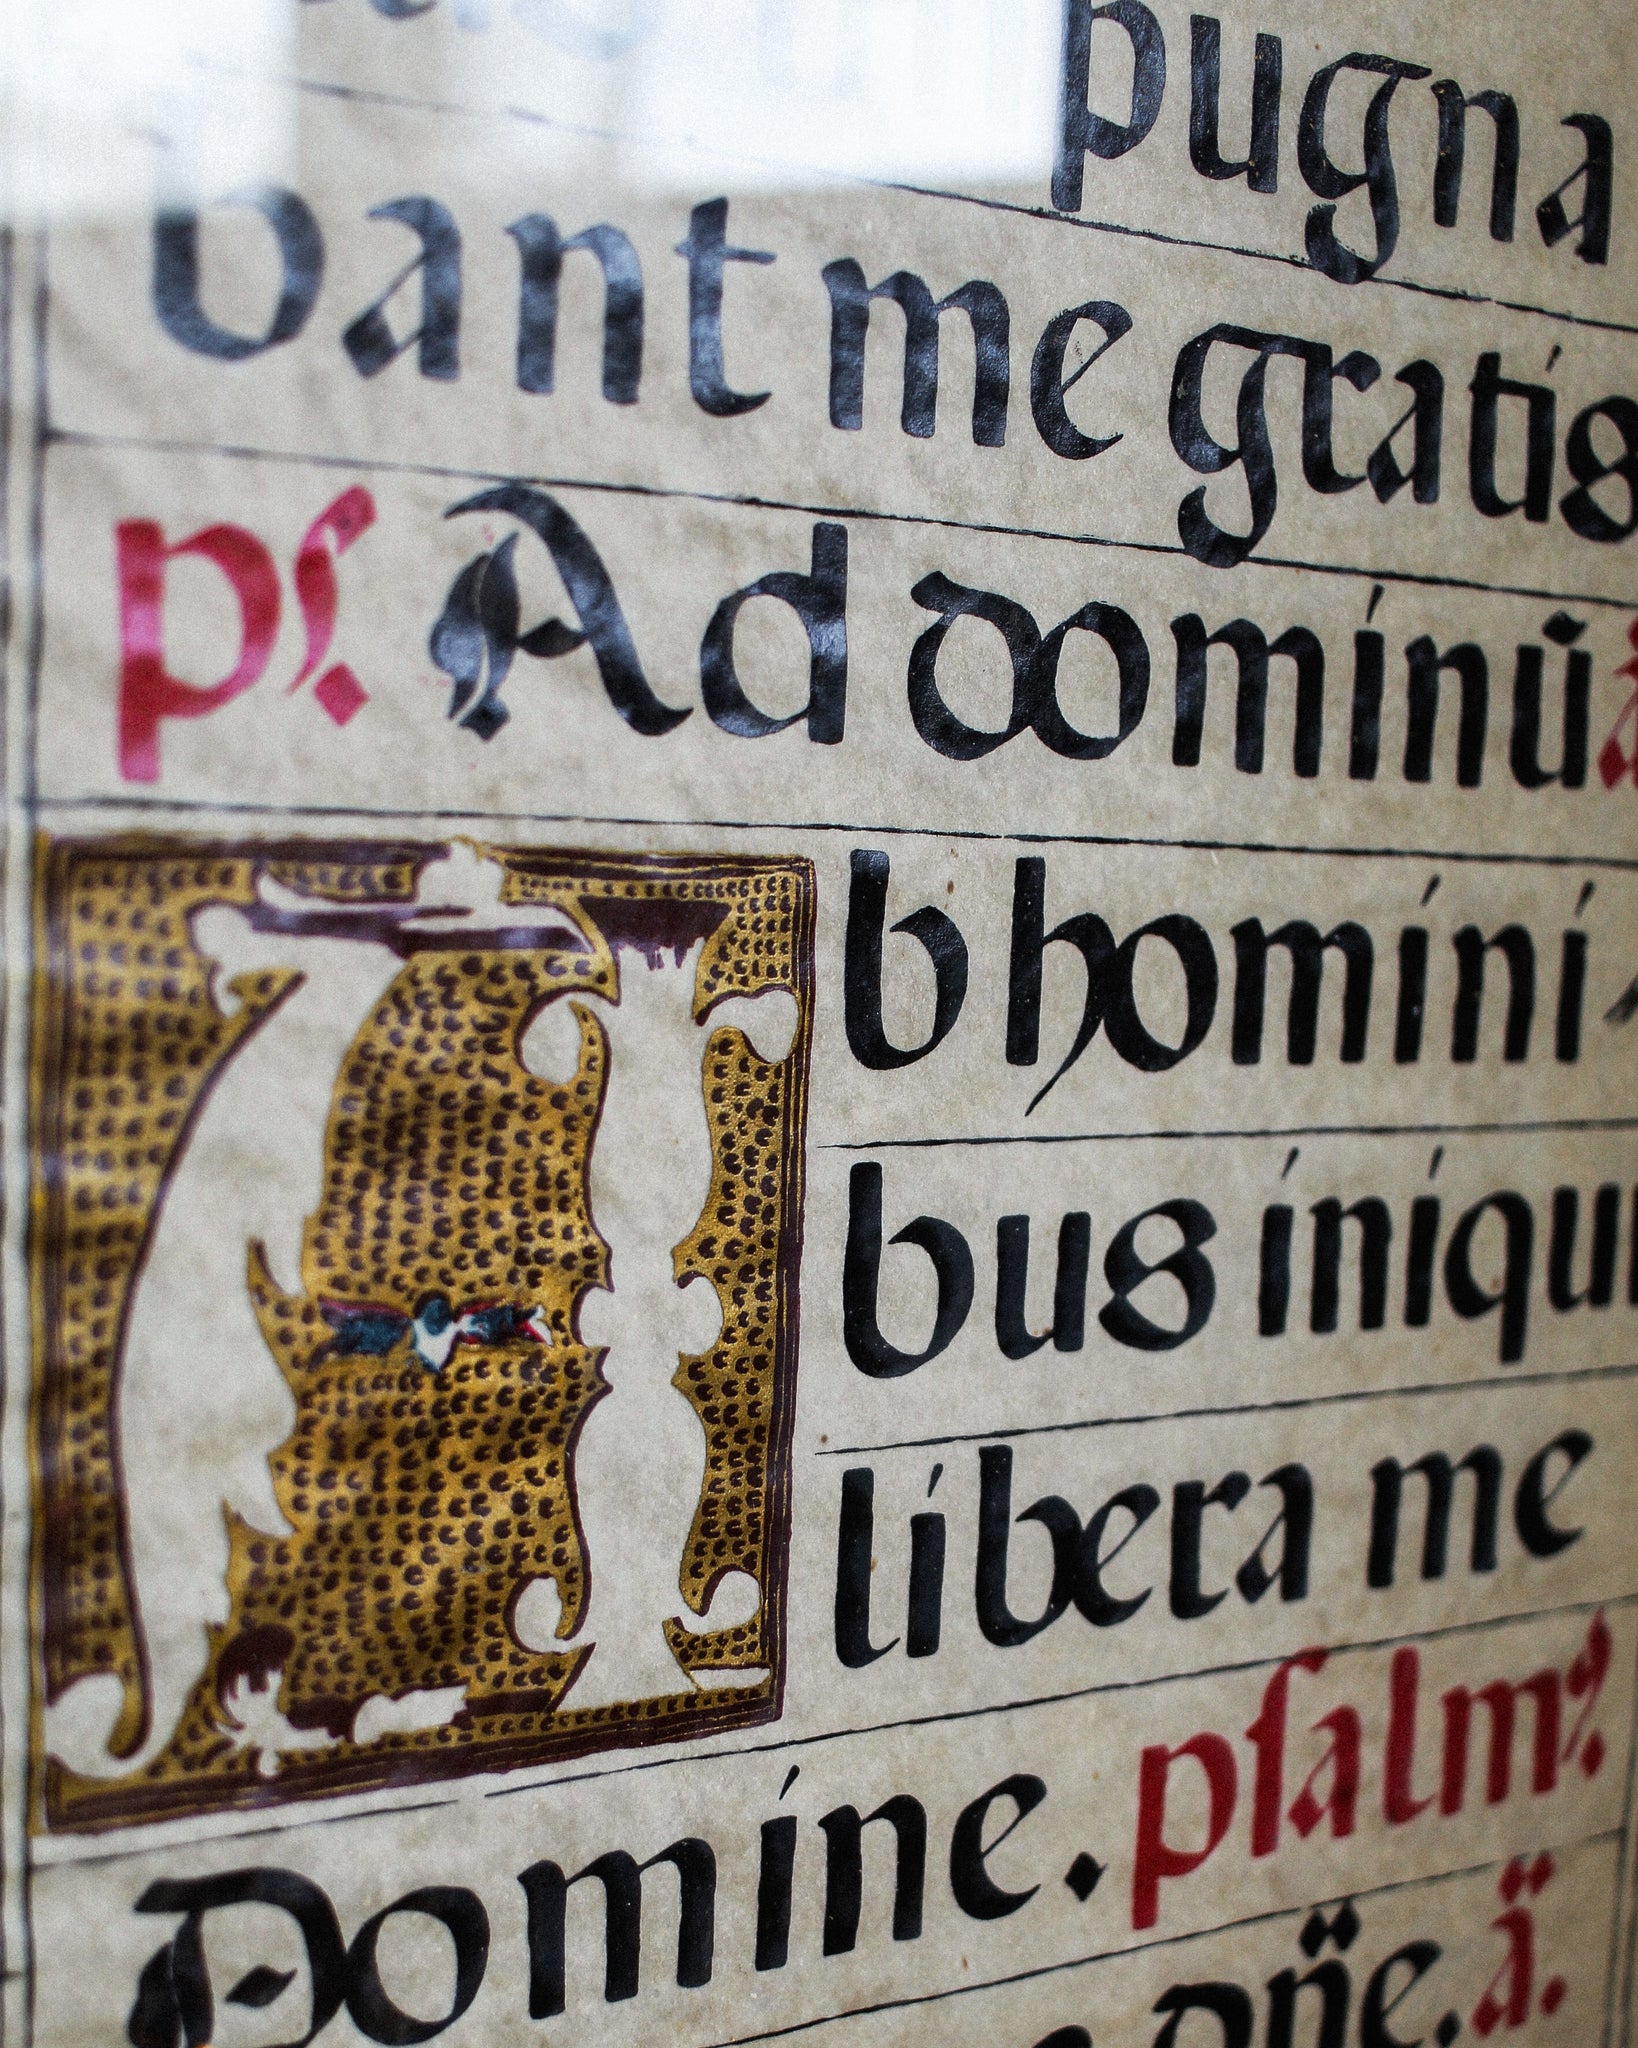 pugna
bant me gratis
ps. Ad dominū ā
Ab homini
bus iniqui
libera me
Domine. psalmꝰ.
Do dn̄e. ā.